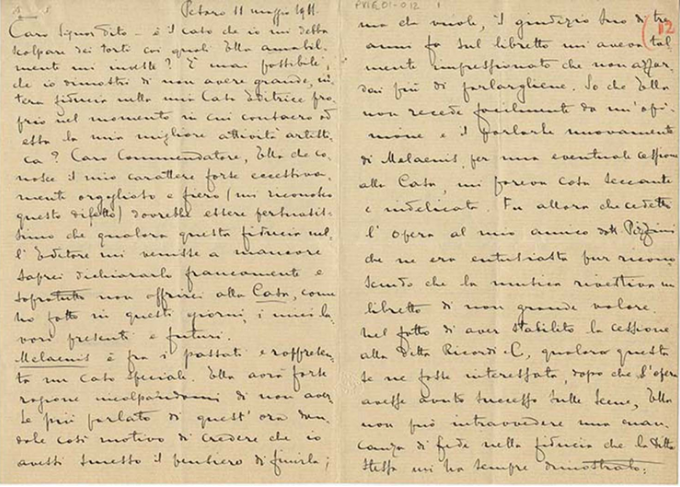 Pesaro 11 maggio 1911.
Caro Signor Tito – è il caso che io mi debba
scolpare dei torti coi quali Ella amabil-
mente mi investe? È mai possibile,
che io dimostri di non avere grande, in-
tera fiducia nella mia Casa Editrice pro-
prio nel momento in cui consacro ad
essa la mia migliore attività artisti-
ca? Caro Commendatore, Ella che co-
nosce il mio carattere forse eccessiva-
mente orgoglioso e fiero (mi riconosco
questo difetto) dovrebbe essere persuasis-
simo che qualora questa fiducia nel-
l'Editore mi venisse a mancare
saprei dichiararlo francamente e
sopratutto non offrirei alla Casa, come
ho fatto in questi giorni, i miei la-
vori presenti e futuri.
Melaenis è fra i passati e rappresen-
ta un caso speciale. Ella avrà forse
ragione incolpandomi di non aver
Le più parlato di quest'opera dan-
dole così motivo di credere che io
avessi smesso il pensiero di finirla;
PRIE01-012
12
ma che vuole, il giudizio Suo di tre
anni fa sul libretto mi aveva tal
mente impressionato che non azzar
dai più di parlargliene. So che Ella
non recede facilmente da un'opi-
nione e il parlarle nuovamente
di Melaenis per una eventuale cessione
alla Casa, mi pareva cosa seccante
e indelicata. Fu allora che cedetti
l'opera al mio amico dott.
che ne era entusiasta pur ricono-
scendo che la musica rivestiva un
libretto di non grande valore.
Nel fatto di aver stabilito la cessione
alla Ditta Ricordi & C, qualora questa
se ne fosse interessata, dopo che l'opera
avesse avuto successo sulle scene, Ella
non può intravvedere una man-
canza di fede nella fiducia che la Ditta
stessa mi ha sempre dimostrato;